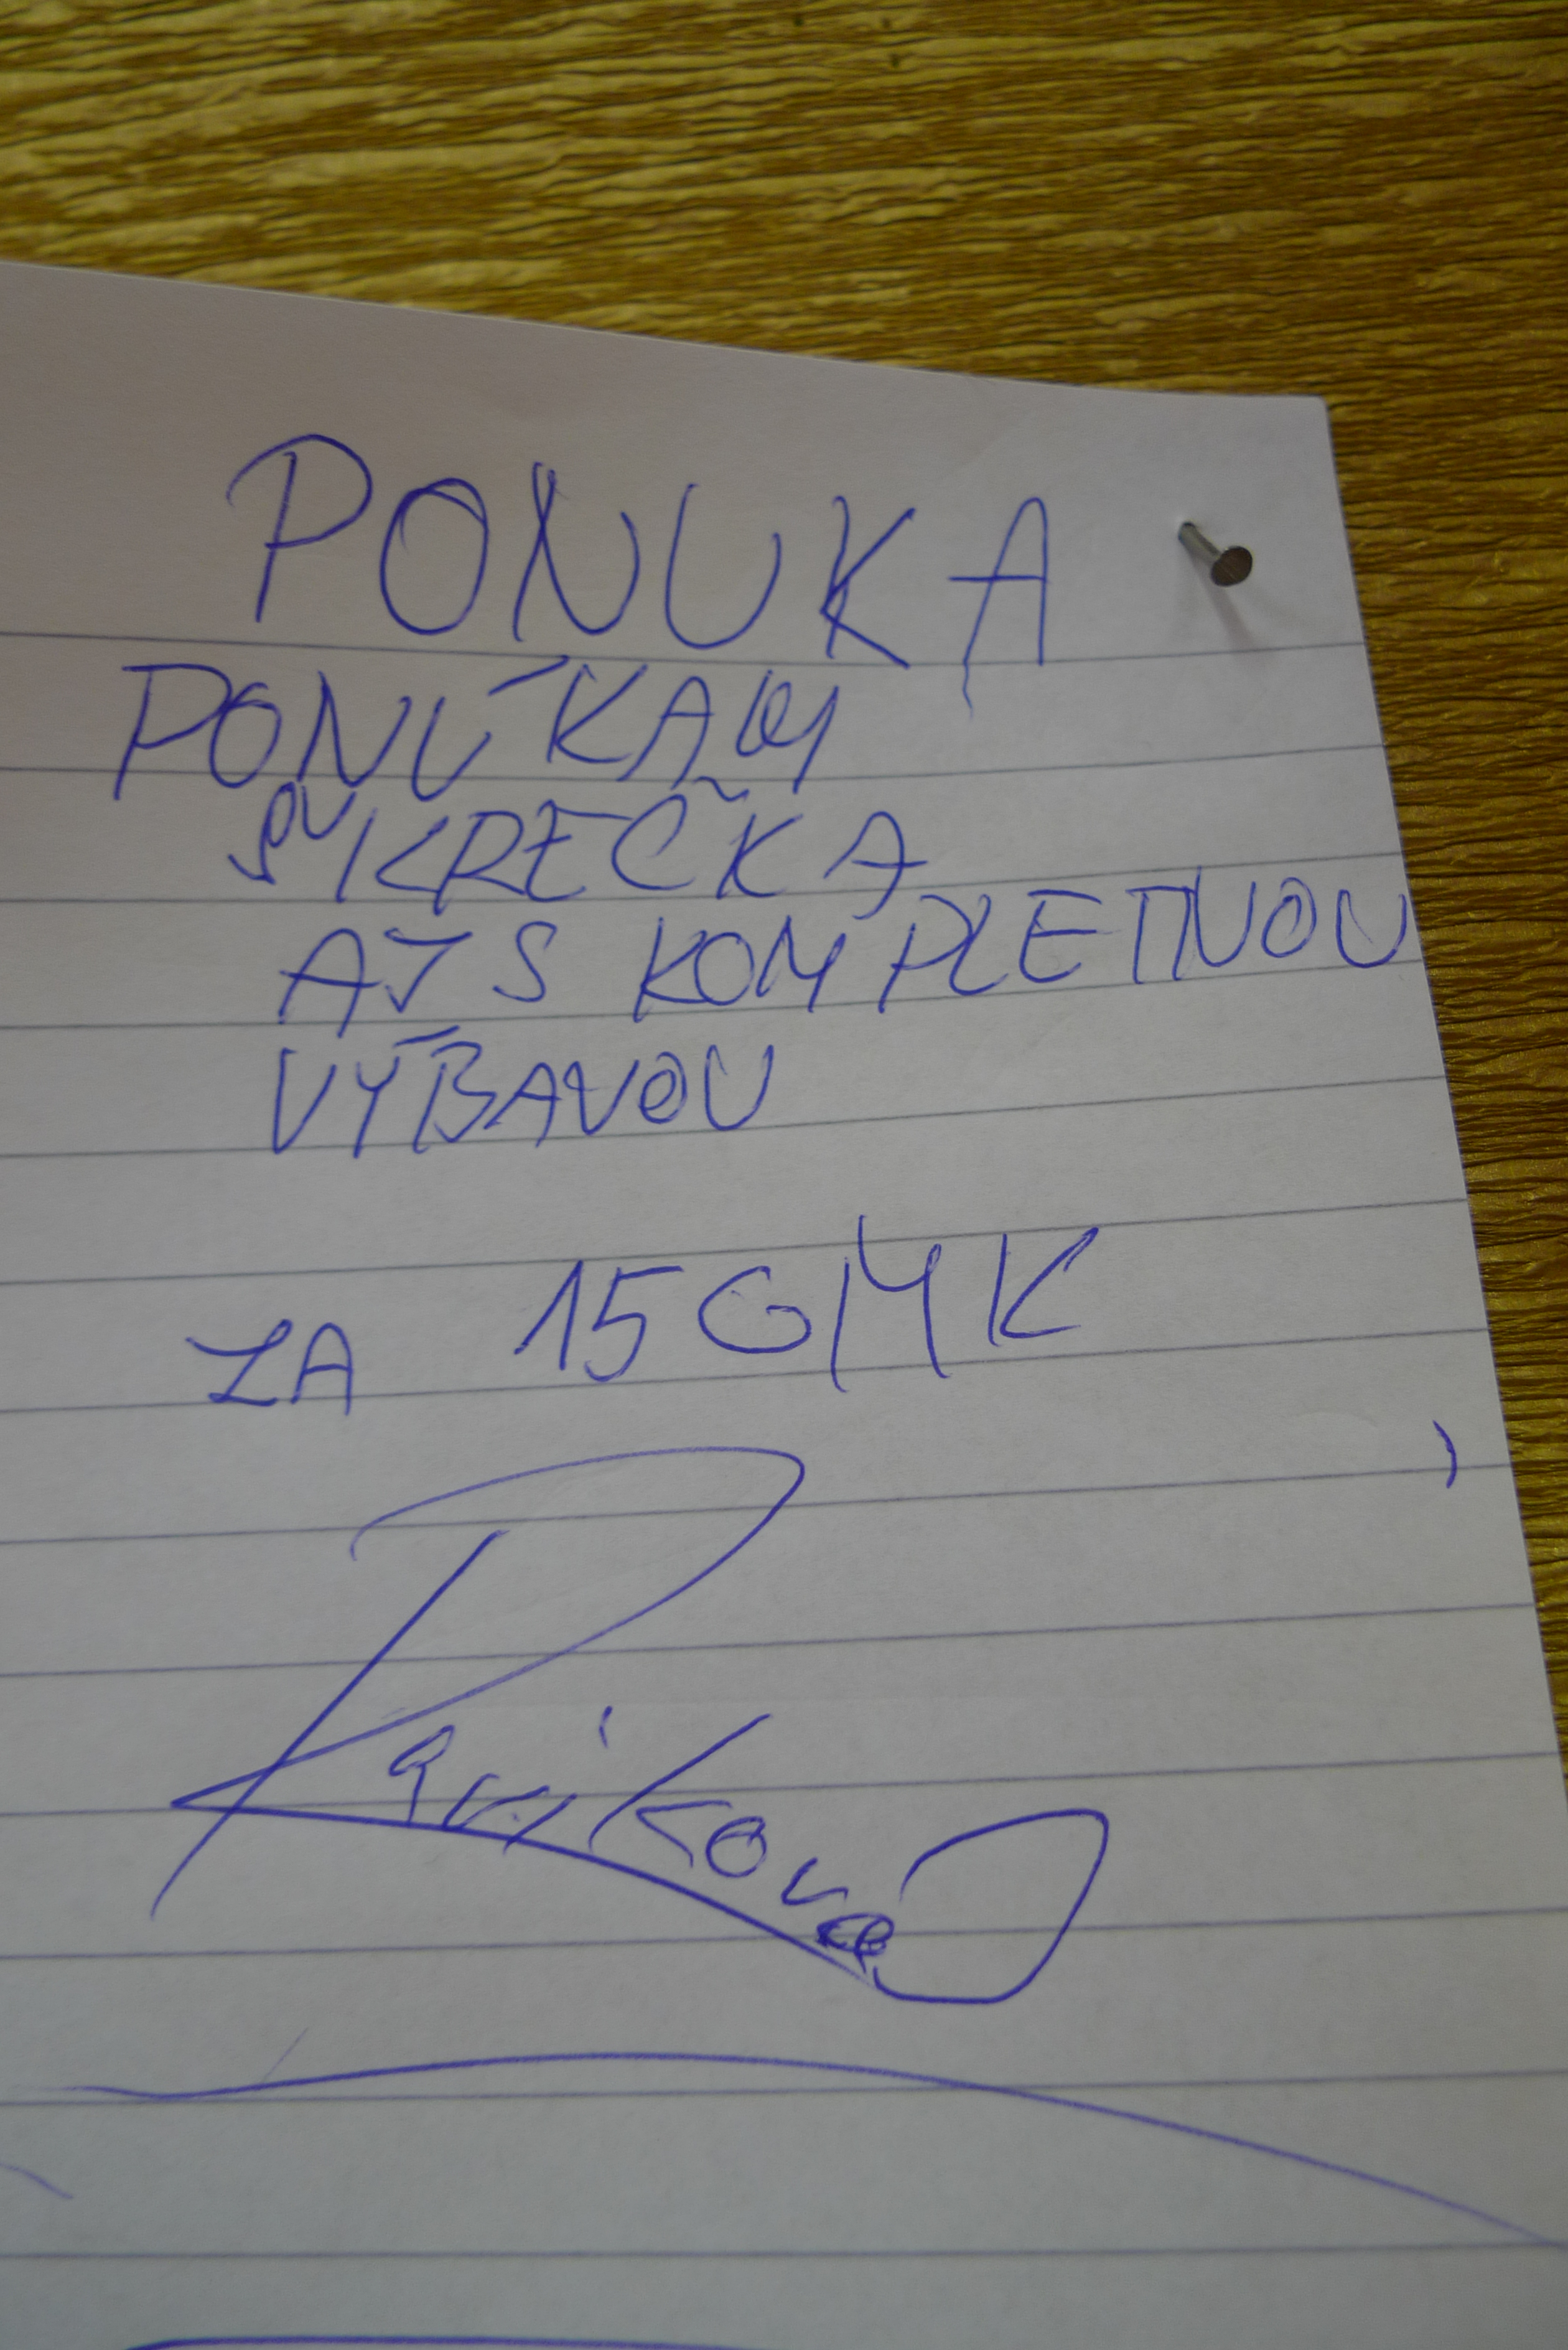 PONUKA
PONÚKAM
ŠKREČKA
AJ S KOMPLETNOU
VÝBAVOU
ZA 15 GMK